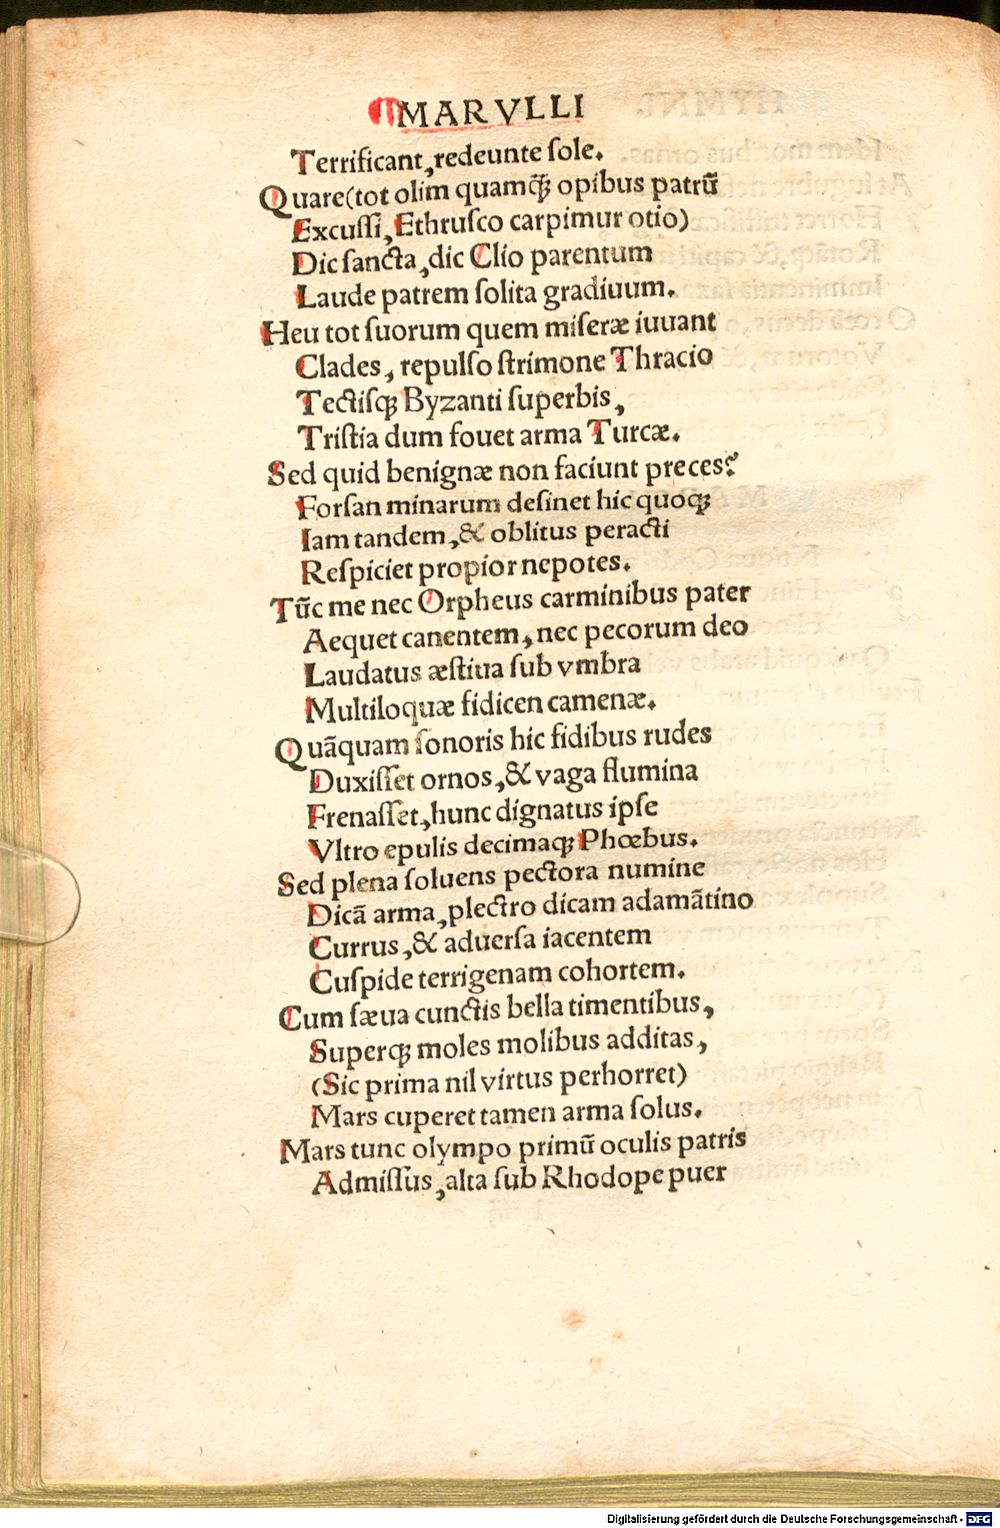 MARVLLI
Terrificant, redeunte ſole.
Quare(tot olim quamqꝫ̃ opibus patrũ
Excuſſi, Ethruſco carpimur otio)
Dic ſancta, dic Clio parentum
Laude patrem ſolita gradiuum.
Heu tot ſuorum quem miſeræ iuuant
Clades, repulſo ſtrimone Thracio
Tectiſqꝫ Byzanti ſuperbis,
Triſtia dum fouet arma Turcæ.
Sed quid benignæ non faciunt preces?
Forſan minarum deſinet hic quoqꝫ
Iam tandem, & oblitus peracti
Reſpiciet propior nepotes.
Tũc me nec Orpheus carminibus pater
Aequet canentem, nec pecorum deo
Laudatus æſtiua ſub vmbra
Multiloquæ fidicen camenæ.
Quãquam ſonoris hic fidibus rudes
Duxiſſet ornos, & vaga flumina
Frenaſſet, hunc dignatus ipſe
Vltro epulis decimaqꝫ Phœbus.
Sed plena ſoluens pectora numine
Dicã arma, plectro dicam adamãtino
Currus, & aduerſa iacentem
Cuſpide terrigenam cohortem.
Cum ſæua cunctis bella timentibus,
Superqꝫ moles molibus additas,
(Sic prima nil virtus perhorret)
Mars cuperet tamen arma ſolus.
Mars tunc olympo primũ oculis patris
Admiſſus, alta ſub Rhodope puer
Digitalisierung gefördert durch die Deutsche Forschungsgemeinschaft - DFG